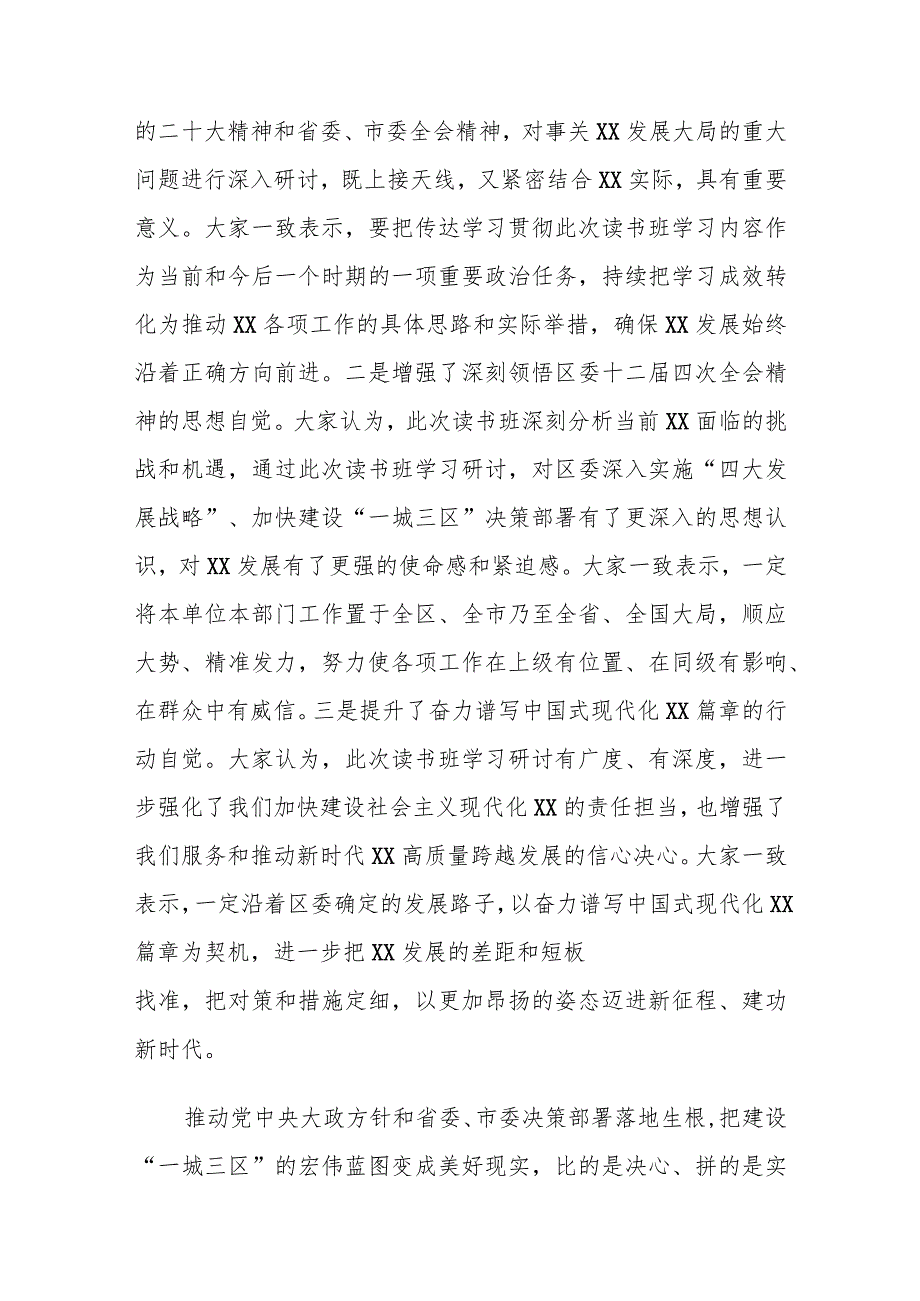 的二十大精神和省委、市委全会精神，对事关XX发展大局的重大
问题进行深入研讨，既上接天线，又紧密结合XX实际，具有重要
意义。大家一致表示，要把传达学习贯彻此次读书班学习内容作
为当前和今后一个时期的一项重要政治任务，持续把学习成效转
化为推动XX各项工作的具体思路和实际举措，确保XX发展始终
沿着正确方向前进。二是增强了深刻领悟区委十二届四次全会精
神的思想自觉。大家认为，此次读书班深刻分析当前XX面临的挑
战和机遇，通过此次读书班学习研讨，对区委深入实施“四大发
展战略”、加快建设“一城三区”决策部署有了更深入的思想认
识，对XX发展有了更强的使命感和紧迫感。大家一致表示，一定
将本单位本部门工作置于全区、全市乃至全省、全国大局，顺应
大势、精准发力，努力使各项工作在上级有位置、在同级有影响、
在群众中有威信。三是提升了奋力谱写中国式现代化XX篇章的行
动自觉。大家认为，此次读书班学习研讨有广度、有深度，进一
步强化了我们加快建设社会主义现代化XX的责任担当，也增强了
我们服务和推动新时代XX高质量跨越发展的信心决心。大家一致
表示，一定沿着区委确定的发展路子，以奋力谱写中国式现代化XX
篇章为契机，进一步把XX发展的差距和短板
找准，把对策和措施定细，以更加昂扬的姿态迈进新征程、建功
新时代。
推动党中央大政方针和省委、市委决策部署落地生根，把建设
“一城三区”的宏伟蓝图变成美好现实，比的是决心、拼的是实